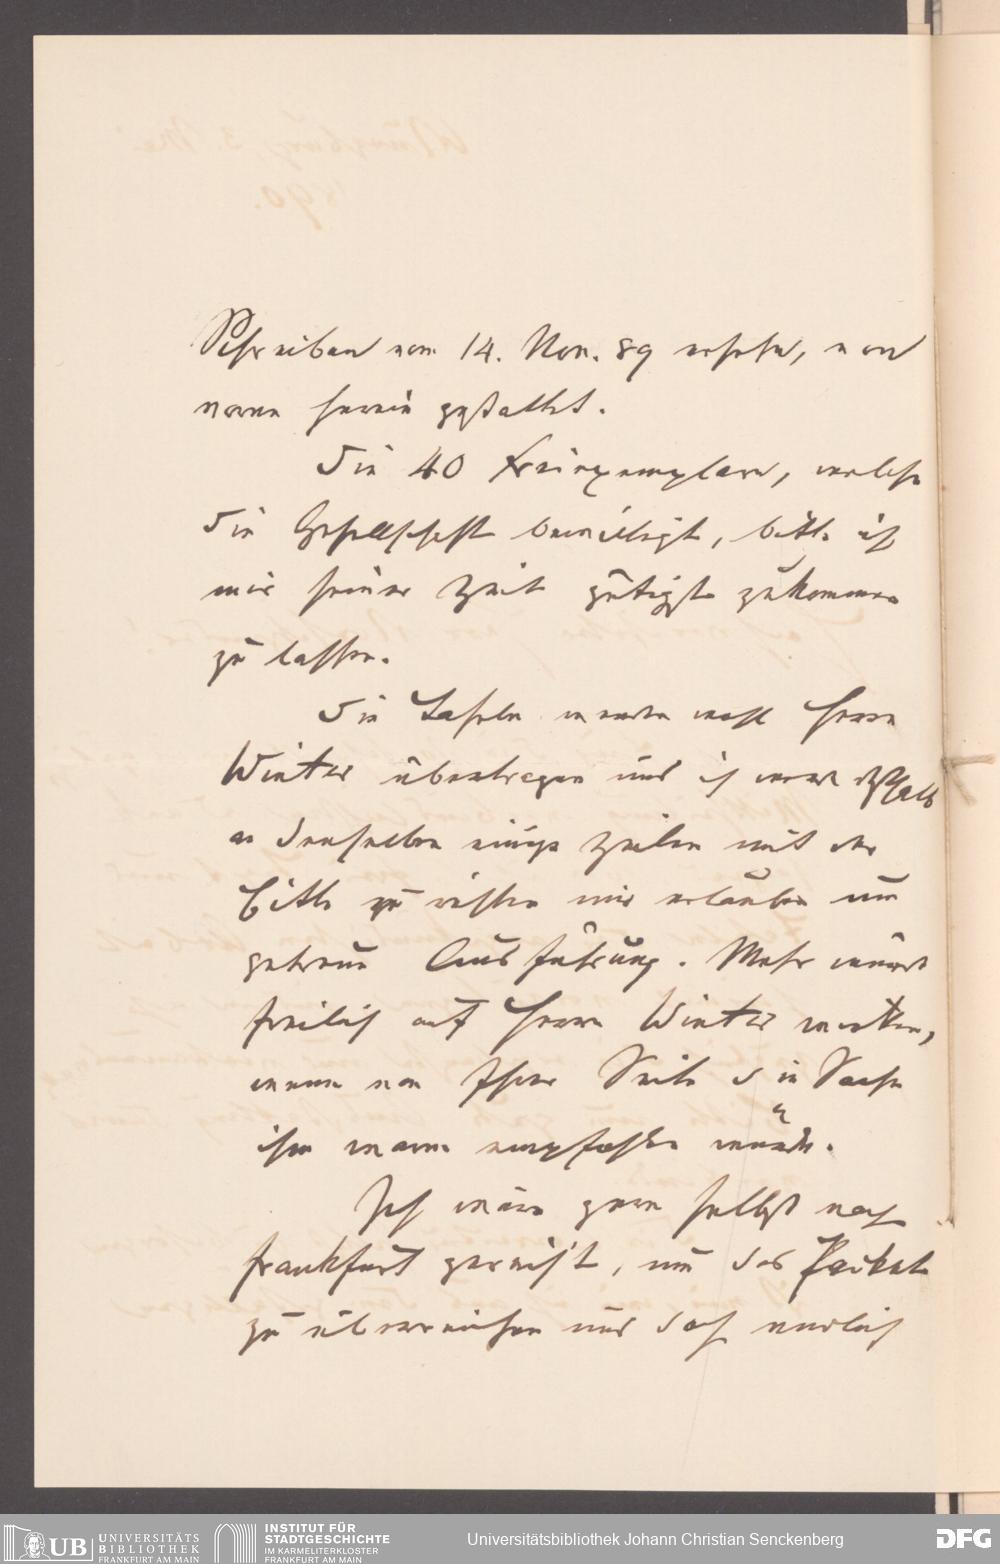 Schreiben vom 14. Nov. 89 ersehe, von
vorn herein gestattet.
Die 40 Freiexemplare, welche
die Gesellschaft bewilligt, bitte ich
mir seiner Zeit gütigst zukommen
zu lassen.
Die Tafeln werden wohl Herrn
Winter übertragen und ich werde deßhalb
an denselben einige Zeilen mit der
Bitte zu richten mir erlauben um
getreue Ausführung. Mehr würde
freilich auf Herrn Winter wirken,
wenn von Ihrer Seite die Sache
ihm warm empfohlen würde.
Ich wäre gern selbst nach
Frankfurt gereist, um das Packet
zu überreichen und doch endlich
UB UNIVERSITÄTS
BIBLIOTHEK
FRANKFURT AM MAIN
INSTITUT FÜR
STADTGESCHICHTE
IM KARMELITERKLOSTER
FRANKFURT AM MAIN
Universitätsbibliothek Johann Christian Senckenberg
DFG